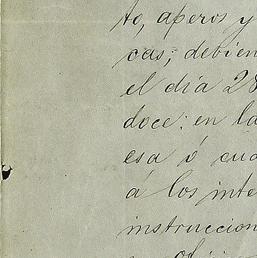 to, aperos y
cas; debien
el día 28
doce: en la
esa ó cua
á los inte
instruccion